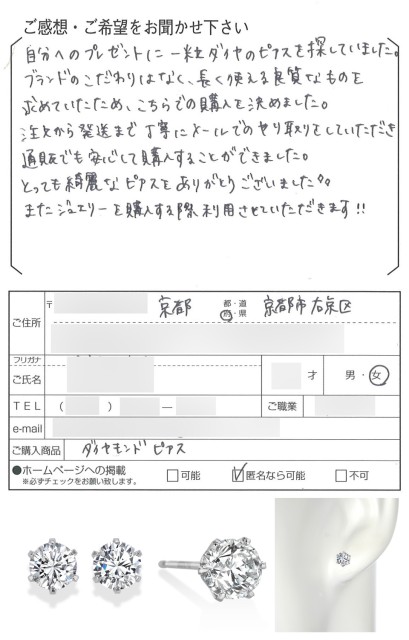 ご感想・ご希望をお聞かせ下さい
自分へのプレゼントに一粒ダイヤのピアスを探していました。
ブランドのこだわりはなく、長く使える良質なものを
求めていたため、こちらでの購入を決めました。
注文から発送まで丁寧にメールでのやり取りをしていただき
通販でも安心して購入することができました。
とっても綺麗なピアスをありがとうございました♪♪
またジュエリーを購入する際利用させていただきます!!
ご住所 〒 京都 都・道・府・県 京都市右京区
フリガナ
ご氏名 才 男・女
TEL ( ) — ご職業
e-mail
ご購入商品 ダイヤモンド ピアス
●ホームページへの掲載 □可能 ☑匿名なら可能 □不可
※必ずチェックをお願い致します。